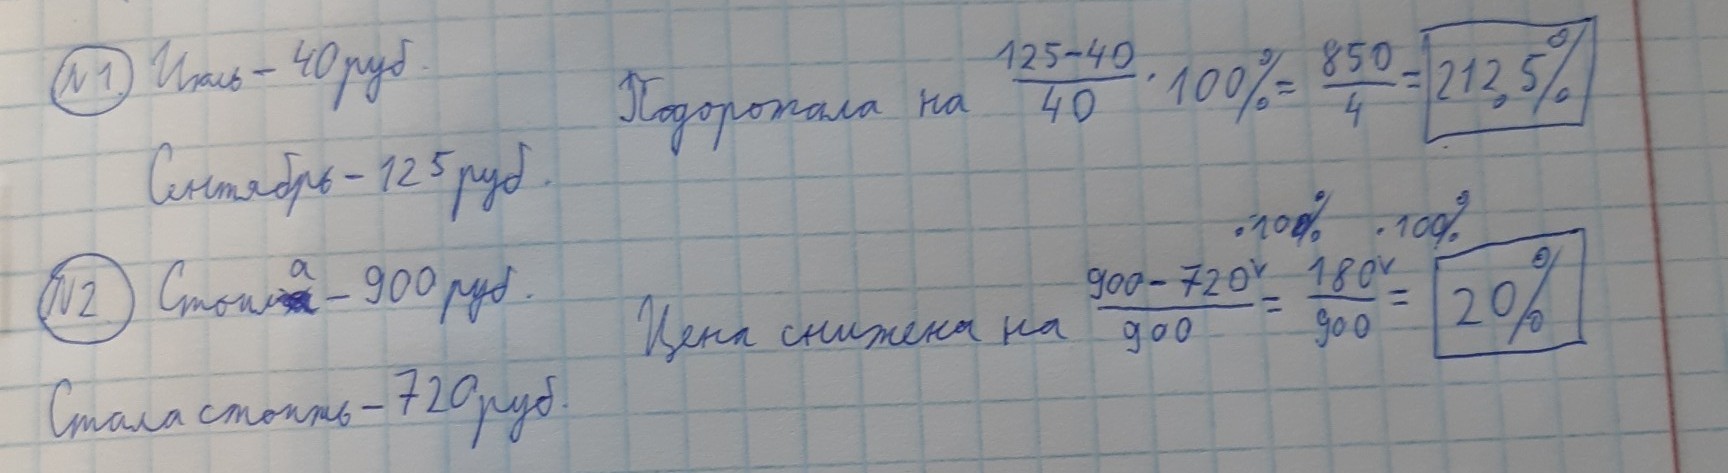 №1 Июль – 40 руб.
Подорожала на (125-40)/40 · 100% = 850/4 = 212,5%
Сентябрь – 125 руб.
№2 Стоила – 900 руб.
Цена снижена на (900-720)/900 · 100% = 180/900 · 100% = 20%
Стала стоить – 720 руб.